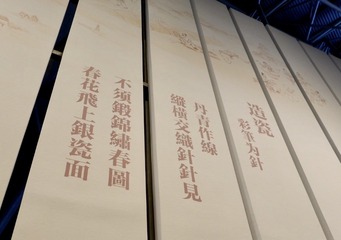 造瓷
彩筆为針
丹青作線
縱橫交織針針見
不須鍛錦繡春圖
春花飛上銀瓷面